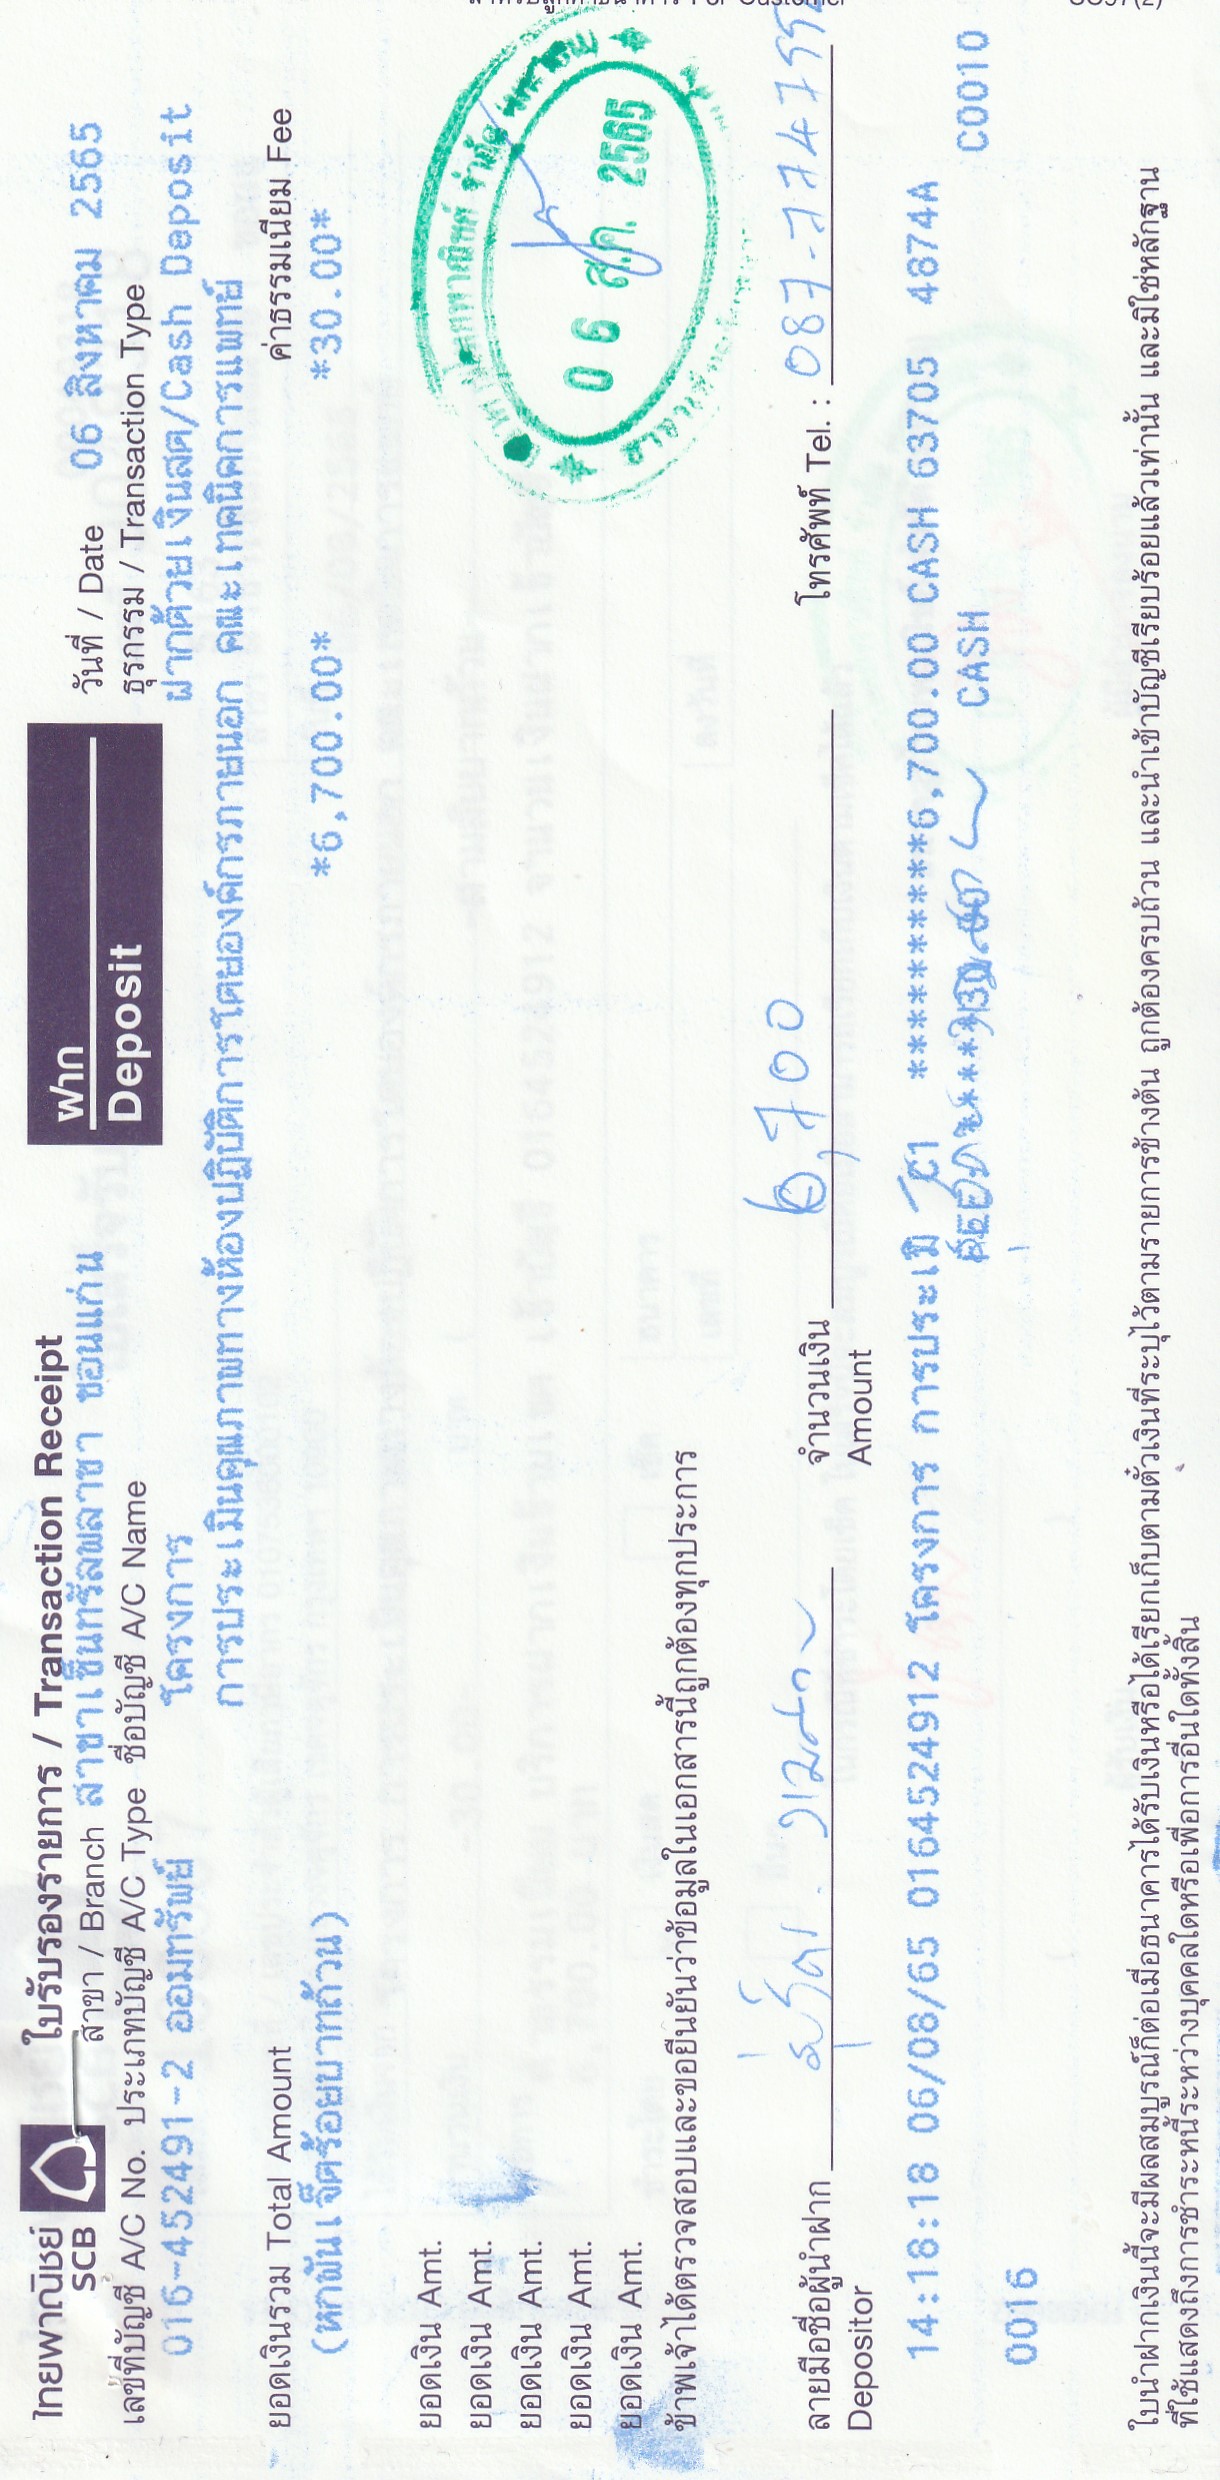 ไทยพาณิชย์
SCB
ใบรับรองรายการ / Transaction Receipt
สาขา / Branch สาขาเซ็นทรัลพลาซา ขอนแก่น
ฝาก
Deposit
วันที่ / Date 06 สิงหาคม 2565
ธุรกรรม / Transaction Type
เลขที่บัญชี A/C No. ประเภทบัญชี A/C Type ชื่อบัญชี A/C Name
016-452491-2 ออมทรัพย์ โครงการ ฝากด้วยเงินสด/Cash Deposit
การประเมินคุณภาพทางห้องปฏิบัติการโดยองค์กรภายนอก คณะเทคนิคการแพทย์
ยอดเงินรวม Total Amount ค่าธรรมเนียม Fee
(หกพันเจ็ดร้อยบาทถ้วน) *6,700.00* *30.00*
ยอดเงิน Amt.
ยอดเงิน Amt.
ยอดเงิน Amt.
ยอดเงิน Amt.
ยอดเงิน Amt.
06 ส.ค. 2565
ข้าพเจ้าได้ตรวจสอบและขอยืนยันว่าข้อมูลในเอกสารนี้ถูกต้องทุกประการ
ลายมือชื่อผู้นำฝาก จำนวนเงิน 6,700 โทรศัพท์ Tel. :
Depositor Amount
14:18:18 06/08/65 0164524912 โครงการ การประเมิ C1 **********6,700.00 CASH 63705 4874A
FEE: *****30.00 CASH C0010
0016
ใบนำฝากเงินนี้จะมีผลสมบูรณ์ก็ต่อเมื่อธนาคารได้รับเงินหรือได้เรียกเก็บตามตั๋วเงินที่ระบุไว้ตามรายการข้างต้น ถูกต้องครบถ้วน และนำเข้าบัญชีเรียบร้อยแล้วเท่านั้น และมิใช่หลักฐาน
ที่ใช้แสดงถึงการชำระหนี้ระหว่างบุคคลใดหรือเพื่อการอื่นใดทั้งสิ้น